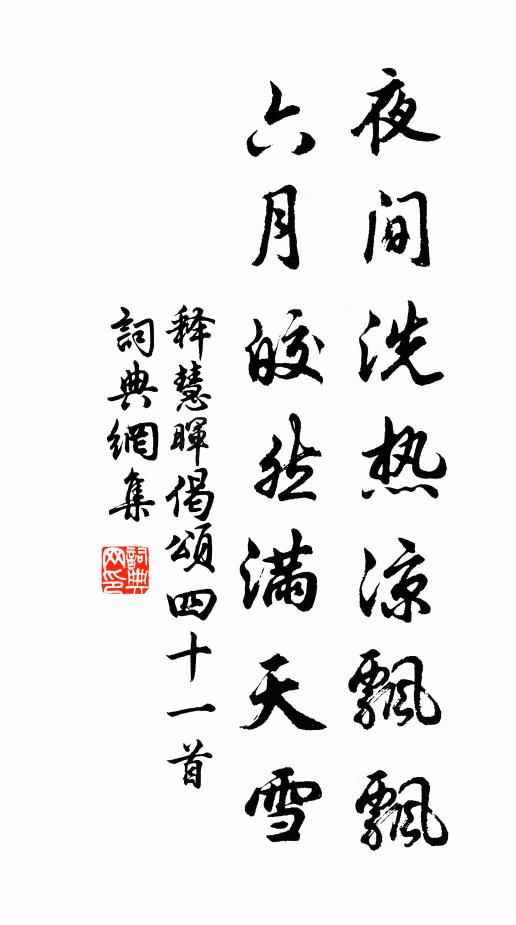 夜间洗热凉飘飘
六月皎然满天雪
释慧暉偈頌四十一首
詞典網集
詞典网印